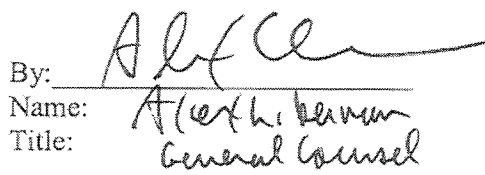 By:
Name: Alex Liberman
Title: General Counsel